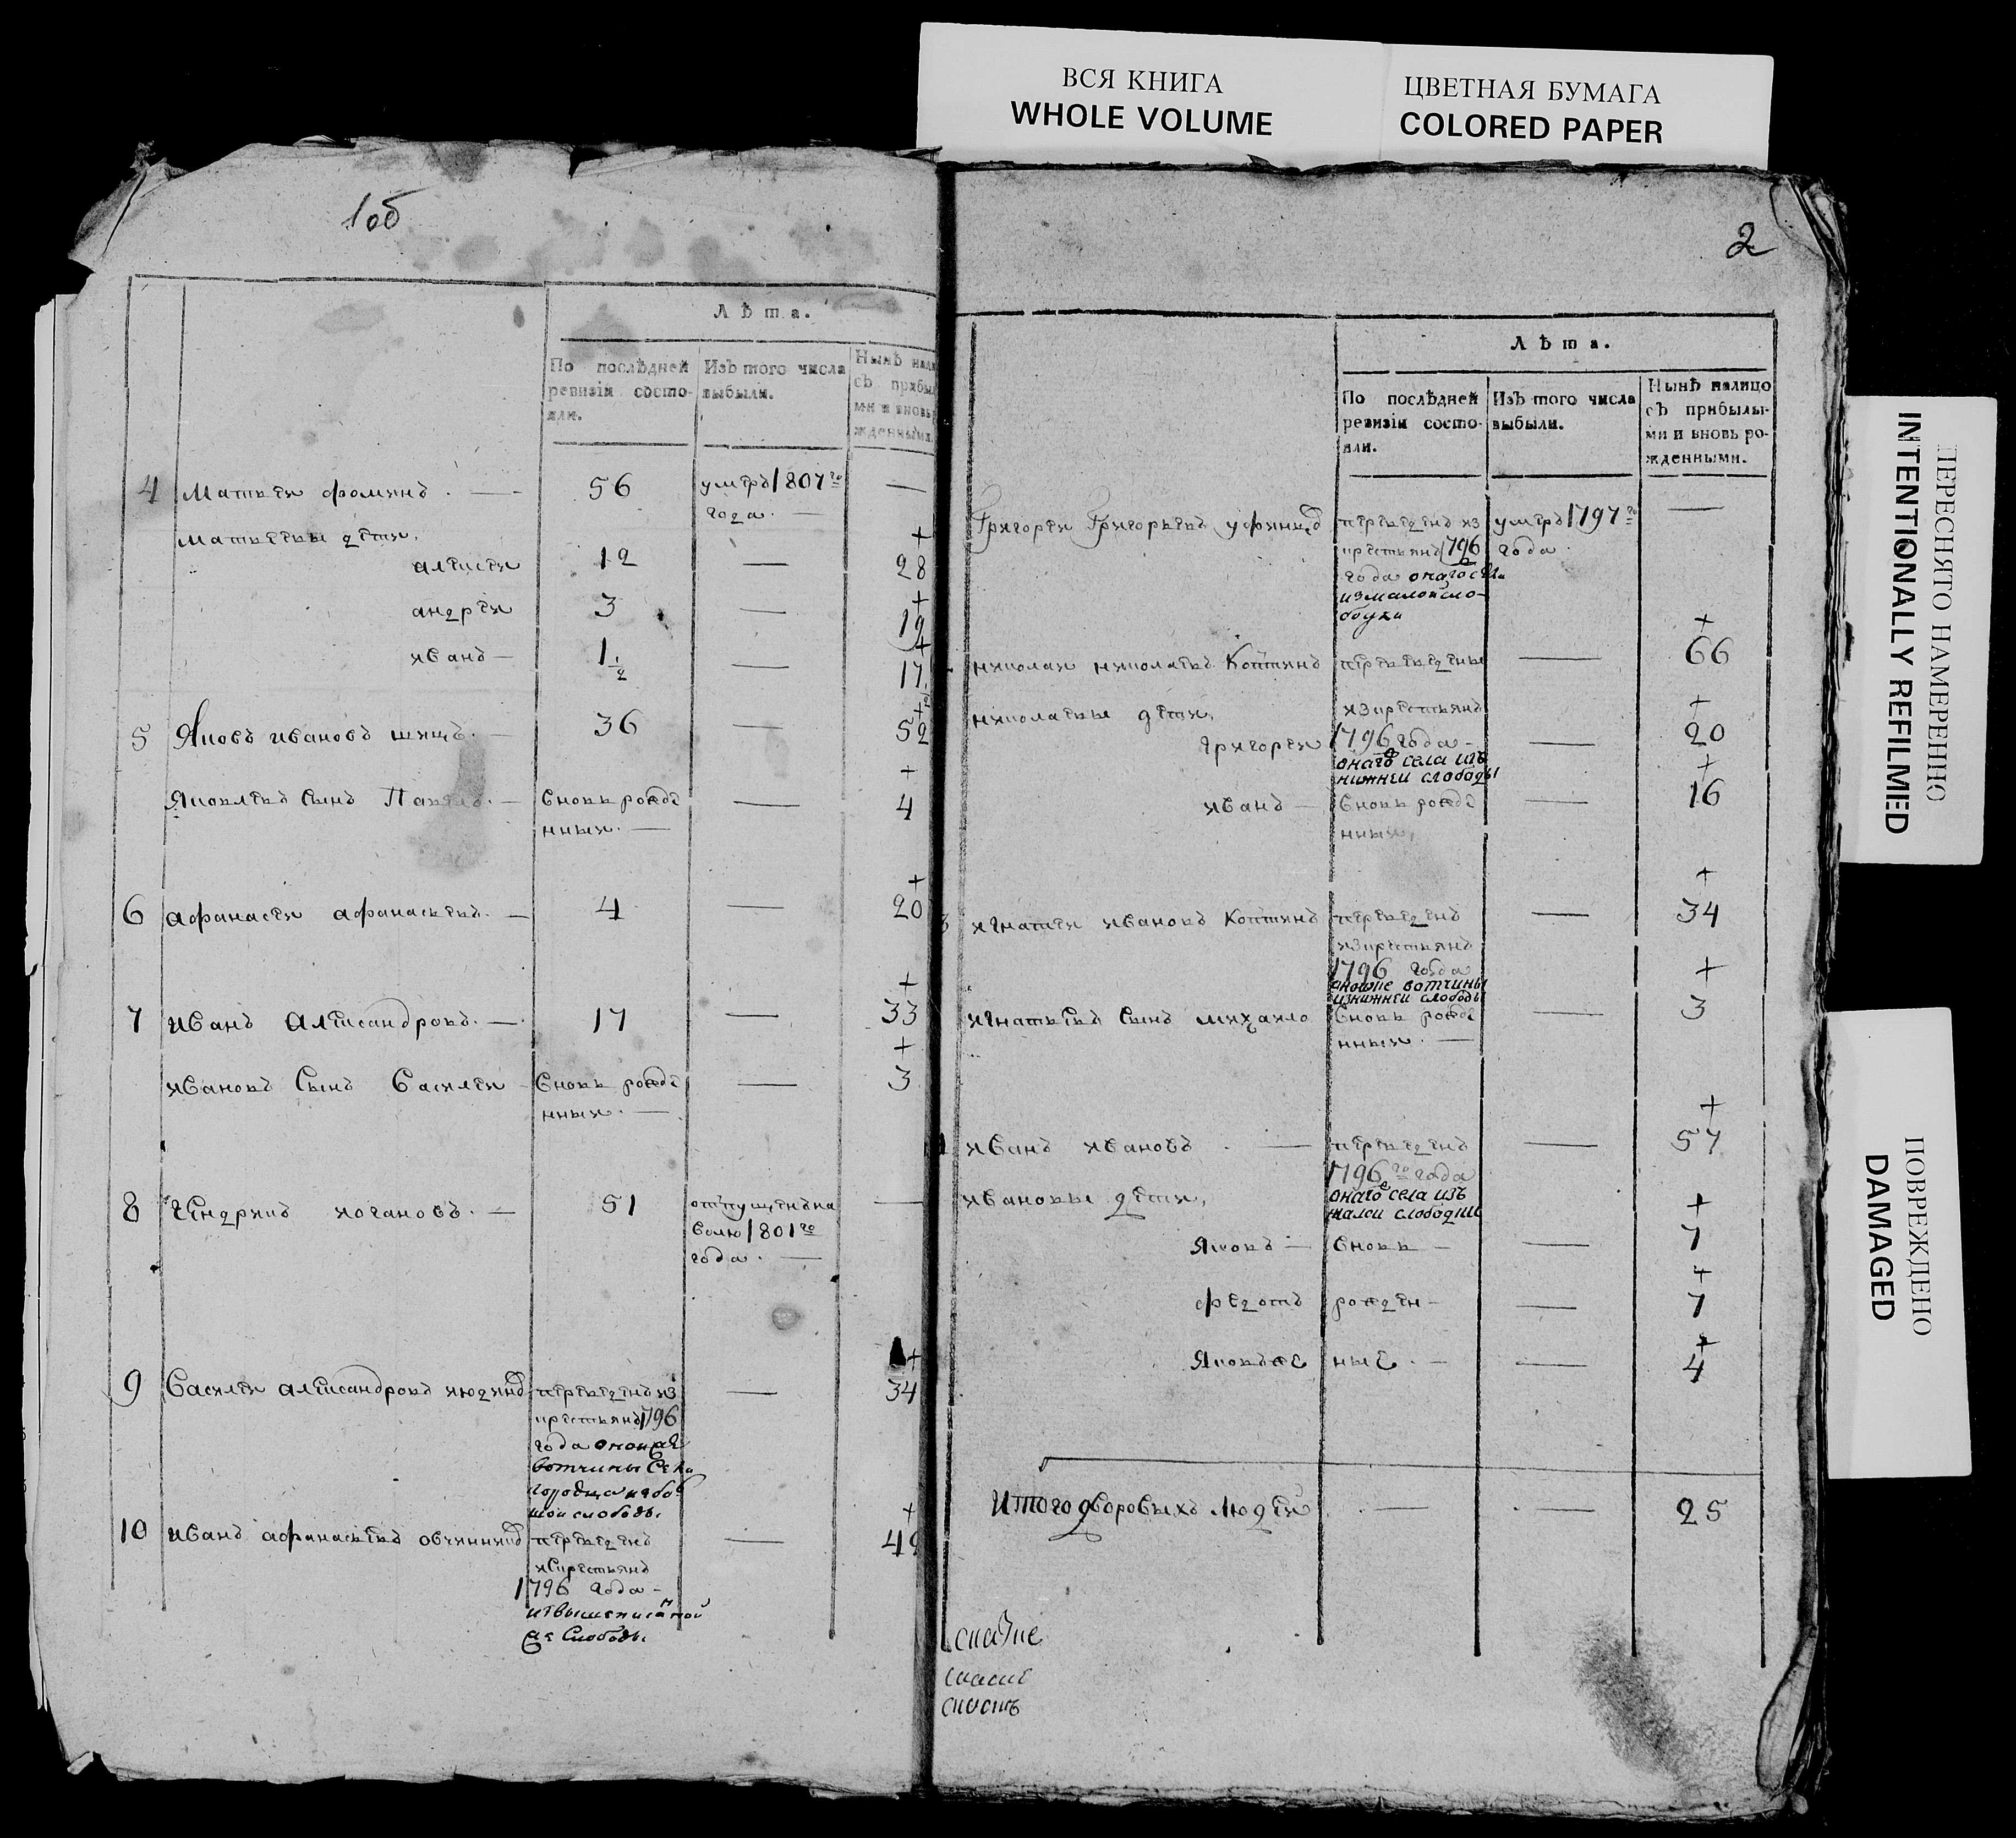 ВСЯ КНИГА
WHOLE VOLUME
ЦВЕТНАЯ БУМАГА
COLORED PAPER
1об
Лѣта.
По послѣдней
ревизіи состо-
яли.
Изъ того числа
выбыли.
Нынѣ нали
съ прибыл
ми и вновь р
жденными.
4 Матвеи фоминъ. — 56 умеръ 1807го —
года. —
Матвеевы дети,
алексеи 12 — + 28
андреи 3 — + 19
иванъ — 1 1/2 — + 17 1/2
5 Яковъ ивановъ — 36 — + 52
Яковлевъ сынъ Павелъ. — вновь рожде — + 4
нныи. —
6 афанасеи афанасьевъ. — 4 — + 20
7 иванъ александровъ. — 17 — + 33
ивановъ сынъ василеи вновь рожде — + 3
нныи. —
8 гендрикъ югановъ. — 51 отпущенъ на —
волю 1801го
года. —
9 василеи александровъ юдинъ переведенъ из — + 34
крестьянъ 1796
года оной же
вотчины села
городца из бол
шои слободы
10 иванъ афанасьевъ овчинник переведенъ — + 49
ис крестьянъ
1796 года —
из вышеписанной
же слободы
2
Лѣта.
По послѣдней
ревизіи состо-
яли.
Изъ того числа
выбыли.
Нынѣ налицо
съ прибылы-
ми и вновь ро-
жденными.
Григореи Григорьевъ переведенъ из умеръ 1797го —
крестьянъ 1796 года
года онаго села
из малой сло-
боды
николаи николаевъ Коптинъ переведены — + 66
николаевы дети, из крестьянъ
григореи 1796 года — — + 20
онаго села изъ
нижнеи слободы
иванъ — вновь рожде — + 16
нныи,
игнатеи ивановъ Коптинъ переведенъ — + 34
из крестьянъ
1796 года
вотчины
из нижнеи слободы
игнатьевъ сынъ михаило вновь рожде — + 3
нныи. —
иванъ ивановъ. — переведенъ — + 57
1796го года
ивановы дети, онаго села изъ
малои слободки
Яковъ — вновь — — + 7
федотъ рожден- — + 7
Яковъже ные. — — + 4
Итого дворовыхъ людеи — — 25
ПЕРЕСНЯТО НАМЕРЕННО
INTENTIONALLY REFILMED
ПОВРЕЖДЕНО
DAMAGED